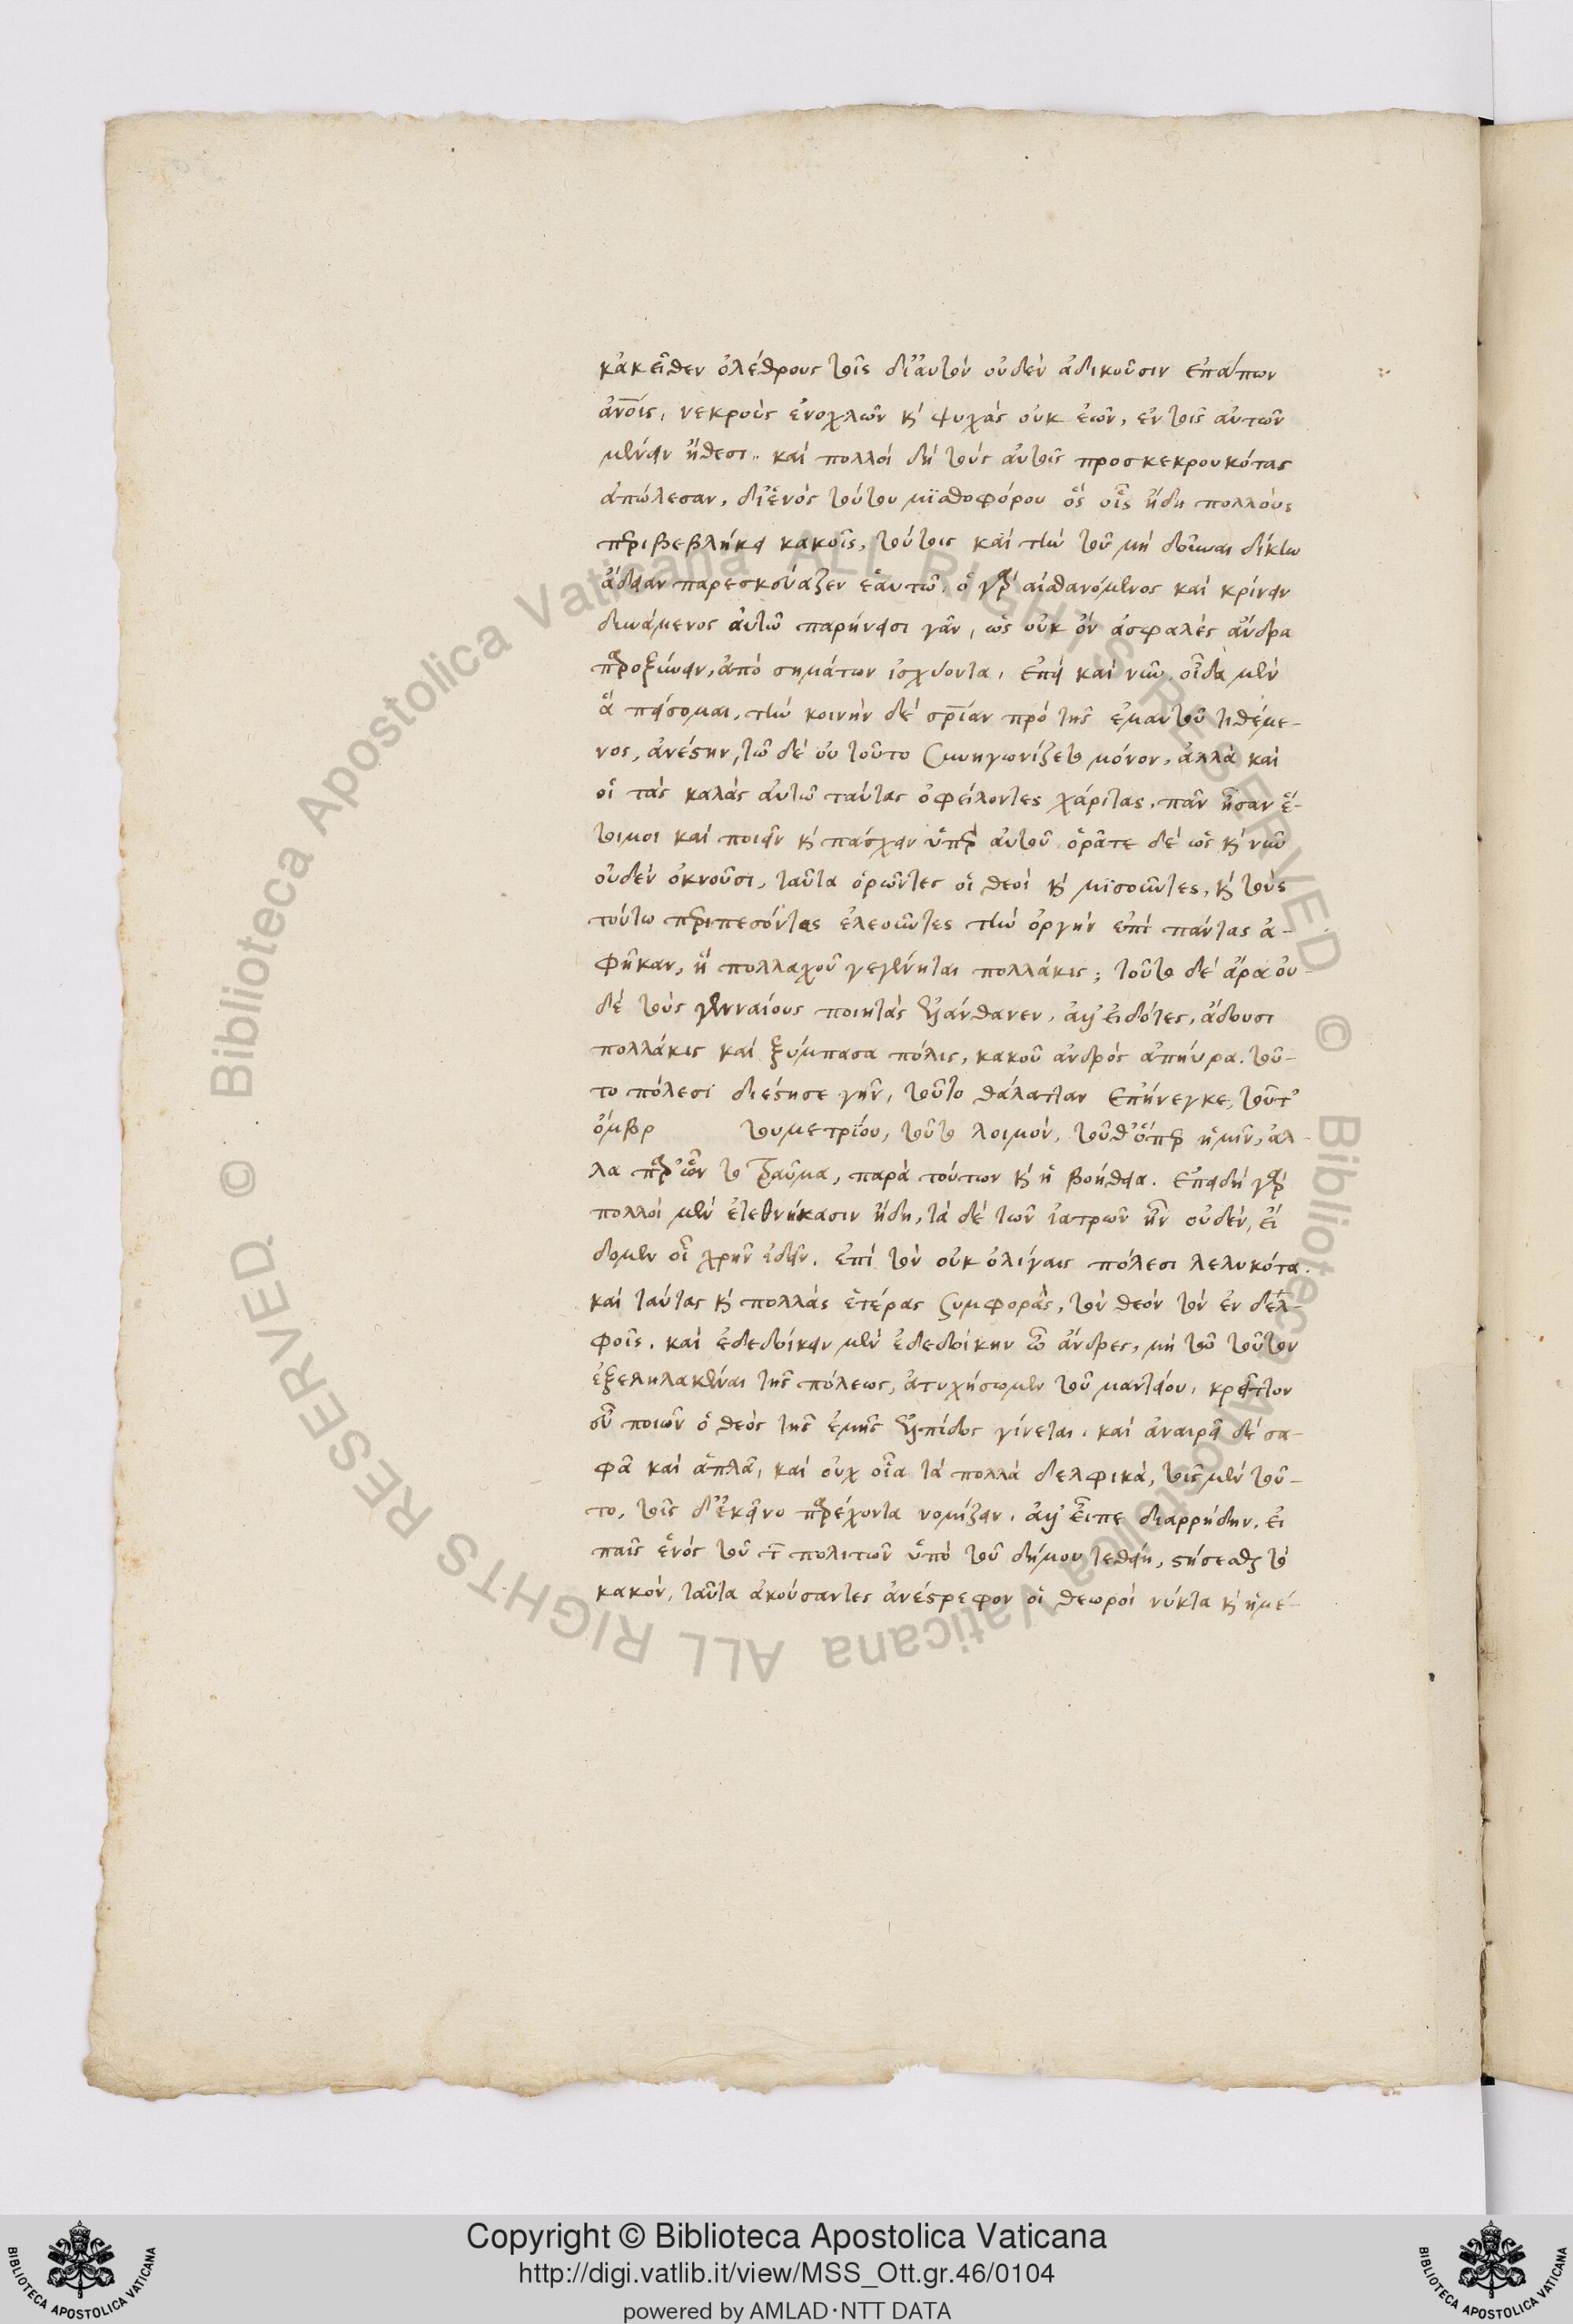 κἀκεῖθεν ὀλέθρους τοῖς δι' αὐτὸν οὐδὲν ἀδικοῦσιν ἐπάγων
ἀν̅οις, νεκροὺς ἐνοχλῶν κ ψυχὰς οὐκ ἐῶν, ἐν τοῖς αὑτῶν
μένειν ἤθεσι. καὶ πολλοὶ δὴ τοὺς αὐτοῖς προσκεκρουκότας
ἀπώλεσαν, δι' ἑνὸς τούτου μισθοφόρου ὃς οἷς ἤδη πολλοὺς
περιβεβλήκει κακοῖς, τούτοις καὶ τὴν τοῦ μὴ δοῦναι δίκην
ἄδειαν παρεσκεύαζεν ἑαυτῷ. ὁ γὰρ αἰσθανόμενος καὶ κρίνειν
δυνάμενος αὐτῷ παρήνεσι γὰρ, ὡς οὐκ ὂν ἀσφαλὲς ἄνδρα
παροξύνειν, ἀπὸ σημάτων ἰσχύοντα, ἐπεὶ καὶ νῦν οἶδα μὲν
ἃ πείσομαι, τὴν κοινὴν δὲ σρίαν πρὸ τῆς ἐμαυτοῦ τιθέμε-
νος, ἀνέστην, τῷ δὲ οὐ τοῦτο συνηγωνίζετο μόνον, ἀλλὰ καὶ
οἱ τὰς καλὰς αὐτῷ ταύτας ὀφείλοντες χάριτας, πᾶν ἦσαν ἕ-
τοιμοι καὶ ποιεῖν κ πάσχειν ὑπὲρ αὐτοῦ ὁρᾶτε δὲ ὡς κ νῦν
οὐδὲν ὀκνοῦσι, ταῦτα ὁρῶντες οἱ θεοὶ κ μισοῦντες, κ τοὺς
τούτω περιπεσόντας ἐλεοῦντες τὴν ὀργὴν ἐπὶ πάντας ἀ-
φῆκαν, ἣ πολλαχοῦ γεγένηται πολλάκις; τοῦτο δὲ ἄρα οὐ-
δὲ τοὺς γενναίους ποιητὰς ἐλάνθανεν, ἀλλ' εἰδότες, ἄδουσι
πολλάκις καὶ ξύμπασα πόλις, κακοῦ ἀνδρὸς ἀπηύρα. τοῦ-
το πόλεσι διέστησε γῆν, τοῦτο θάλατταν ἐπήνεγκε, τοῦτ'
ὄμβρ τουμετρίου, τοῦτο λοιμὸν, τοῦθ' ὅπερ ἡμῖν, ἀλ-
λα παρ' ὧν τὸ τραῦμα, παρὰ τούτων κ ἡ βοήθεια. Ἐπειδὴ γὰρ
πολλοὶ μὲν ἐτεθνήκασιν ἤδη, τὰ δὲ τῶν ἰατρῶν ἦν οὐδὲν, εἴ
δομεν οἷ χρῆν ἐλθεῖν. ἐπὶ τὸν οὐκ ὀλίγαις πόλεσι λελυκότα.
καὶ ταύτας κ πολλὰς ἑτέρας συμφορὰς, τὸν θεὸν τὸν ἐν δελ-
φοῖς. καὶ ἐδεδοίκειν μὲν ἐδεδοίκην ὦ ἄνδρες, μὴ τῷ τοῦτον
ἐξεληλακέναι τῆς πόλεως, ἀτυχήσωμεν τοῦ μαντείου, κρεῖττον
οὖν ποιῶν ὁ θεὸς τῆς ἐμῆς ἐλπίδος γίνεται, καὶ ἀναιρεῖ δὲ σα-
φᾶ καὶ ἁπλᾶ, καὶ οὐχ οἷα τὰ πολλὰ δελφικὰ, τοῖς μὲν τοῦ-
το, τοῖς δ' ἐκεῖνο παρέχοντα νομίζειν, ἀλλ' εἶπε διαρρήδην, εἰ
παῖς ἑνὸς τοῦ τ̅ πολιτῶν ὑπὸ τοῦ δήμου τεθείη, στήσεσθαι τὸ
κακὸν, ταῦτα ἀκούσαντες ἀνέστρεφον οἱ θεωροὶ νύκτα κ ἡμέ-
Copyright © Biblioteca Apostolica Vaticana
http://digi.vatlib.it/view/MSS_Ott.gr.46/0104
powered by AMLAD·NTT DATA